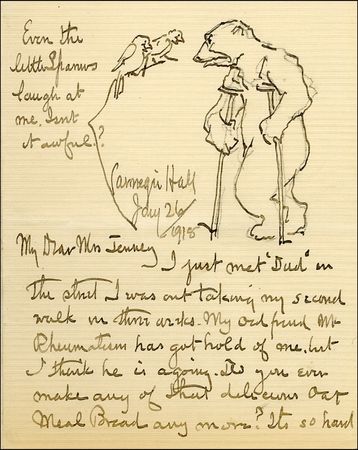 Even the
little Sparrows
laugh at
me. Isnt
it awful?
Carnegie Hall
Jany 26
1918
My Dear Mrs
I just met "Dad" in
the street I was out taking my second
walk in three weeks. My old friend Mr
Rheumatism has got hold of me, but
I think he is a going. Do you ever
make any of that delicious Oat
Meal Bread any more? Its so hard